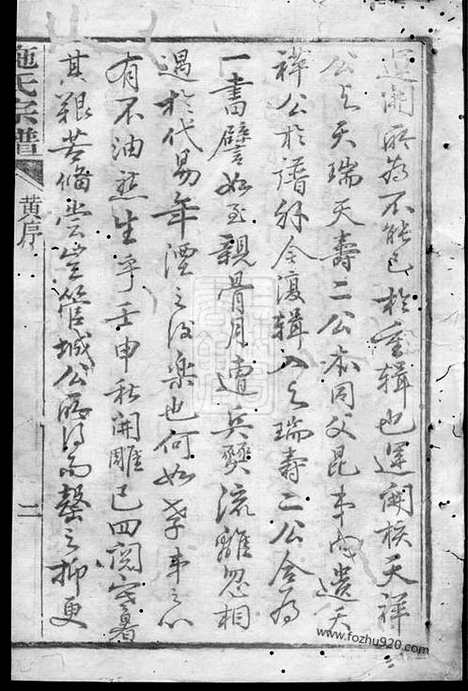 運開所為不能已於重辑也運開核天祥
公与天瑞天壽二公亦同父昆弟而遺天
祥公於譜外今復辑入与瑞壽二公合為
一書譬如至親骨月遭兵燹流離忽相
遇於代易年湮之後樂也何如孝弟之心
有不油然生乎壬申秋開雕已四閲寒暑
其艱苦偹嘗豈管城公所得而罄之抑更
施氏宗譜
黄序
二
www.fozhu920.com